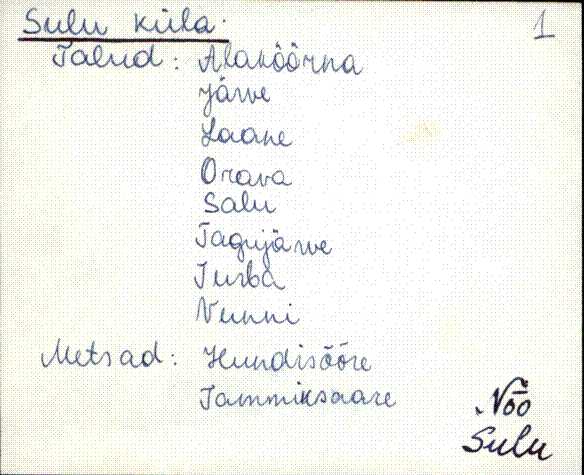 Sulu küla. 1
Talud: Alaköörna
Järve
Laane
Orava
Salu
Tagujärve
Turba
Vunni
Metsad: Hundisööre
Tammiksaare
Nõo
Sulu